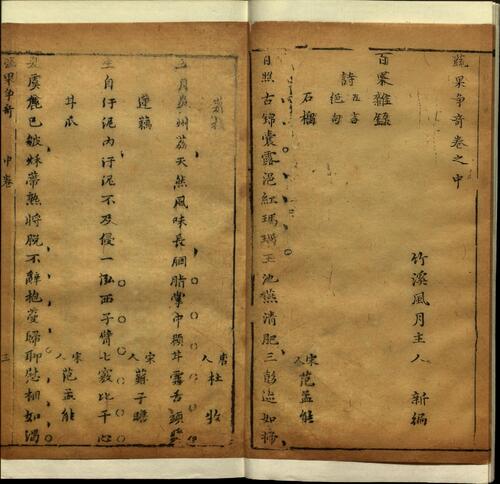 蔬果爭奇卷之中
竹溪風月主人 新編
百菓雜錄
詩 五言絕句
石榴 宋人 范孟能
日照古錦囊露浥紅瑪瑙玉池嚥清肥三彭迹如掃
荔枝 唐人 杜牧
五月 州荔天然風味長胭脂掌中顆甘露舌頭漿
蓮藕 宋人 蘇子瞻
生自汙泥內汙泥不及侵一泓西子臂七竅比干心
甘瓜 宋人 范孟能
夏虞 已皴妹蒂熟將脫不辭抱蔓歸聊慰相如渴
蔬果爭奇 中卷 三